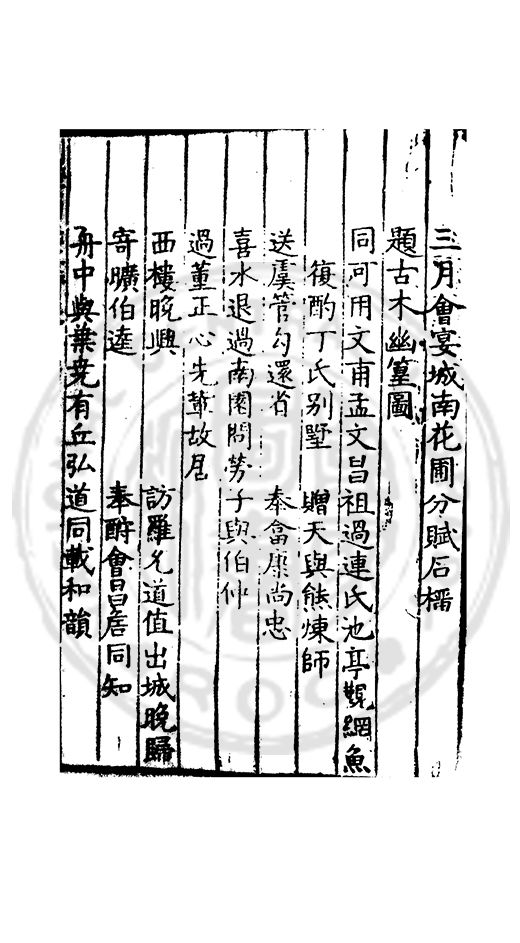 三月會宴城南花圃分賦石榴
題古木幽篁圖
同可用文甫孟文昌祖過連氏池亭觀網魚
復酌丁氏別墅　贈天與熊煉師
送虞管勾還省　奉畲康尚忠
喜水退過南園問勞子與伯仲
過董正心先輩故居
西樓晚興　訪羅允道值出城晚歸
寄曠伯逵　奉酧會昌居同知
舟中與葉堯有丘弘道同載和韻